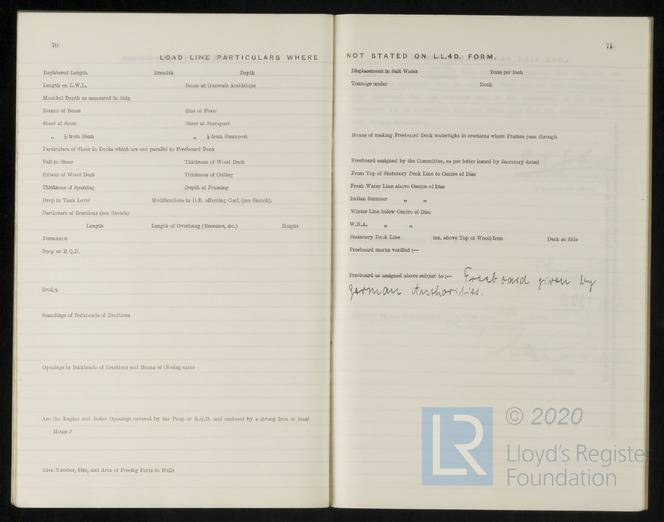 70
LOAD LINE PARTICULARS WHERE
Registered Length Breadth Depth
Length on L.W.L. Dense at Gunwale Amidships
Moulded Depth as measured in Ship
Round of Beam Rise of Floor
Sheer at Stem Sheer at Sternpost
„ ⅛ from Stem „ ⅛ from Sternpost
Particulars of Sheer in Decks which are not parallel to Freeboard Deck
Fall in Sheer Thickness of Wood Deck
Extent of Wood Deck Thickness of Ceiling
Thickness of Sparring Depth of Framing
Drop in Tank Level Modifications in D.B. affecting Coef. (see Sketch).
Particulars of Erections (see Sketch)
Length Length of Overhang (Recesses, &c.) Height
Forecastle
Poop or R.Q.D.
Bridge
Scantlings of Bulkheads of Erections
Openings in Bulkheads of Erections and Means of Closing same
Are the Engine and Boiler Openings covered by the Poop or R.Q.D. and enclosed by a strong Iron or Steel
House ?
Give Number, Size, and Area of Freeing Ports in Wells
71
NOT STATED ON LL.4D. FORM.
Displacement in Salt Water Tons per Inch
Tonnage under Deck
Means of making Freeboard Deck watertight in erections where Frames pass through
Freeboard assigned by the Committee, as per letter issued by Secretary dated
From Top of Statutory Deck Line to Centre of Disc
Fresh Water Line above Centre of Disc
Indian Summer „ „
Winter Line below Centre of Disc
W.N.A. „ „
Statutory Deck Line ins. above Top of Wood/Iron Deck at Side
Freeboard marks verified :—
Freeboard as assigned above subject to :— Freeboard given by
German Authorities.
LR
© 2020
Lloyd's Register
Foundation